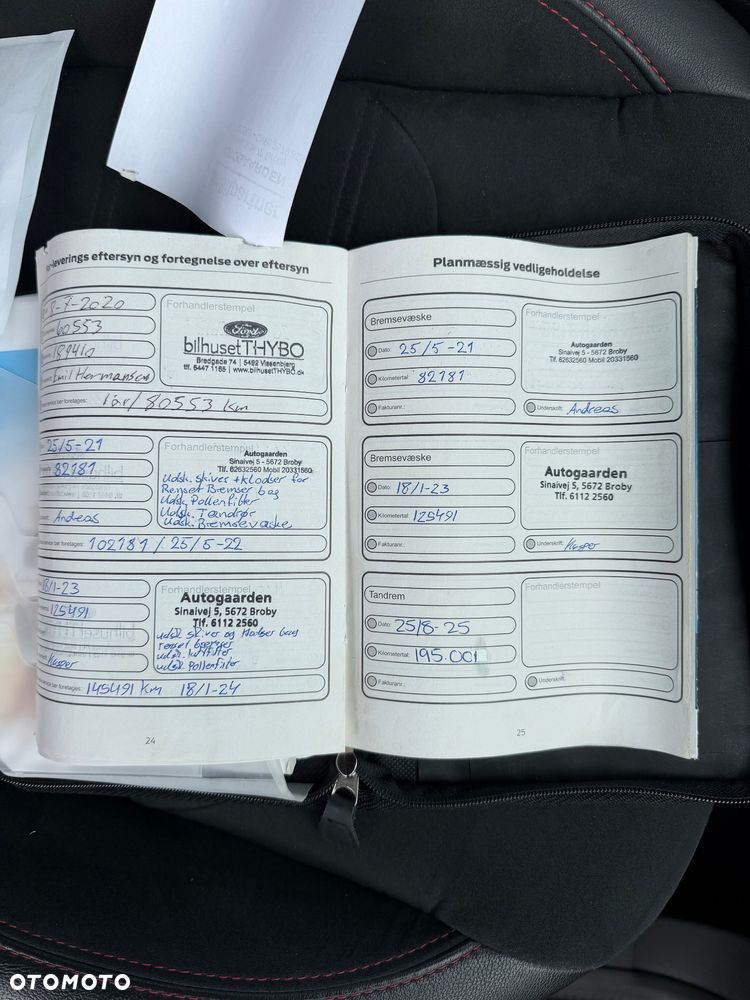 r-leverings eftersyn og fortegnelse over eftersyn
8-7-2020
60553
189410
Emil Hermansen
service bør foretages: 1 år/80553 Km
Forhandlerstempel
Ford
bilhusetTHYBO
Bredgade 74 | 5492 Vissenbjerg
tlf. 6447 1165 | www.bilhusetTHYBO.dk
25/5-21
82181
Andreas
service bør foretages: 102181 / 25/5-22
Forhandlerstempel
Autogaarden
Sinaivej 5 - 5672 Broby
Tlf. 62632560 Mobil 20331560
Udsk. skiver + klodser for
Renset Bremser bag
Udsk. Pollenfilter
Udsk. Tændrør
Udsk. Bremsevæske
18/1-23
125491
Kasper
service bør foretages: 145491 Km 18/1-24
Forhandlerstempel
Autogaarden
Sinaivej 5, 5672 Broby
Tlf. 6112 2560
udsk skiver og klodser bag
renset bremser
udsk. luftfilter
udsk. Pollenfilter
24
Planmæssig vedligeholdelse
Bremsevæske
Dato: 25/5-21
Kilometertal: 82181
Fakturanr.:
Forhandlerstempel
Autogaarden
Sinaivej 5 - 5672 Broby
Tlf. 62632560 Mobil 20331560
Underskrift: Andreas
Bremsevæske
Dato: 18/1-23
Kilometertal: 125491
Fakturanr.:
Autogaarden
Sinaivej 5, 5672 Broby
Tlf. 6112 2560
Underskrift: Kasper
Tandrem
Dato: 25/8-25
Kilometertal: 195.001
Fakturanr.:
Forhandlerstempel
Underskrift:
25
OTOMOTO